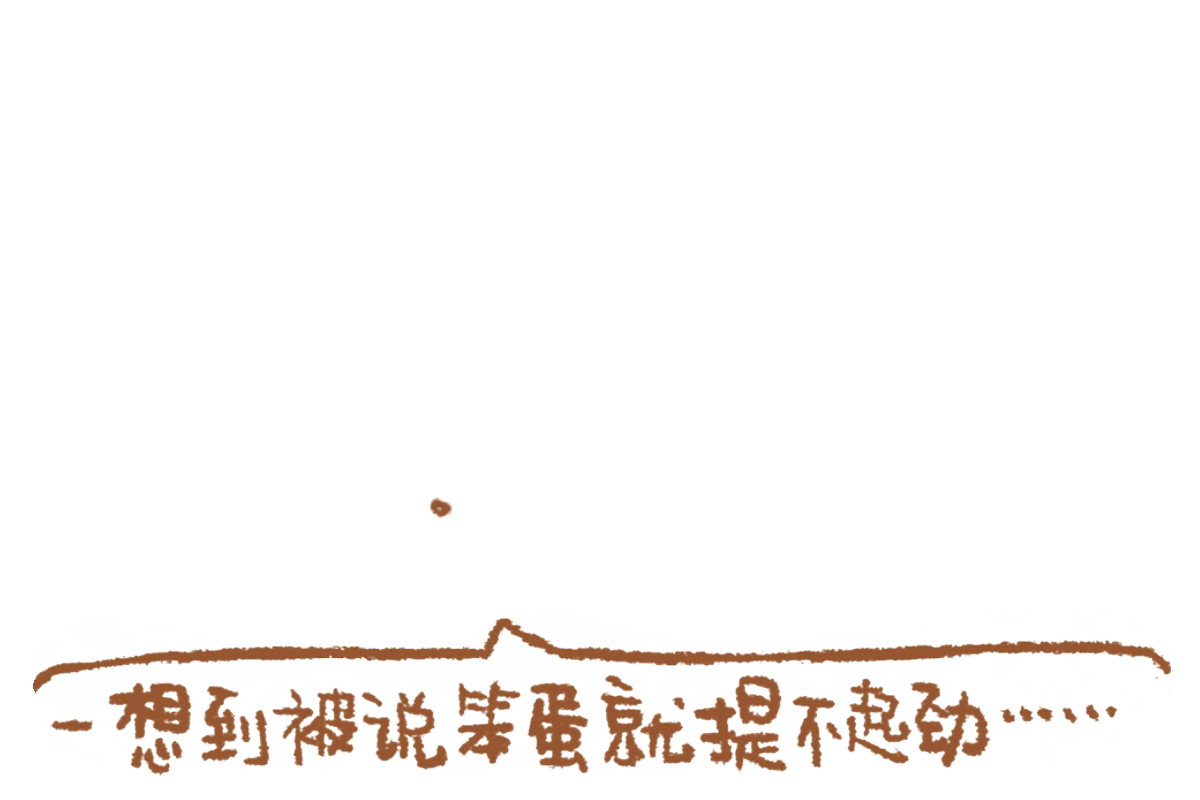 一想到被说笨蛋就提不起劲……